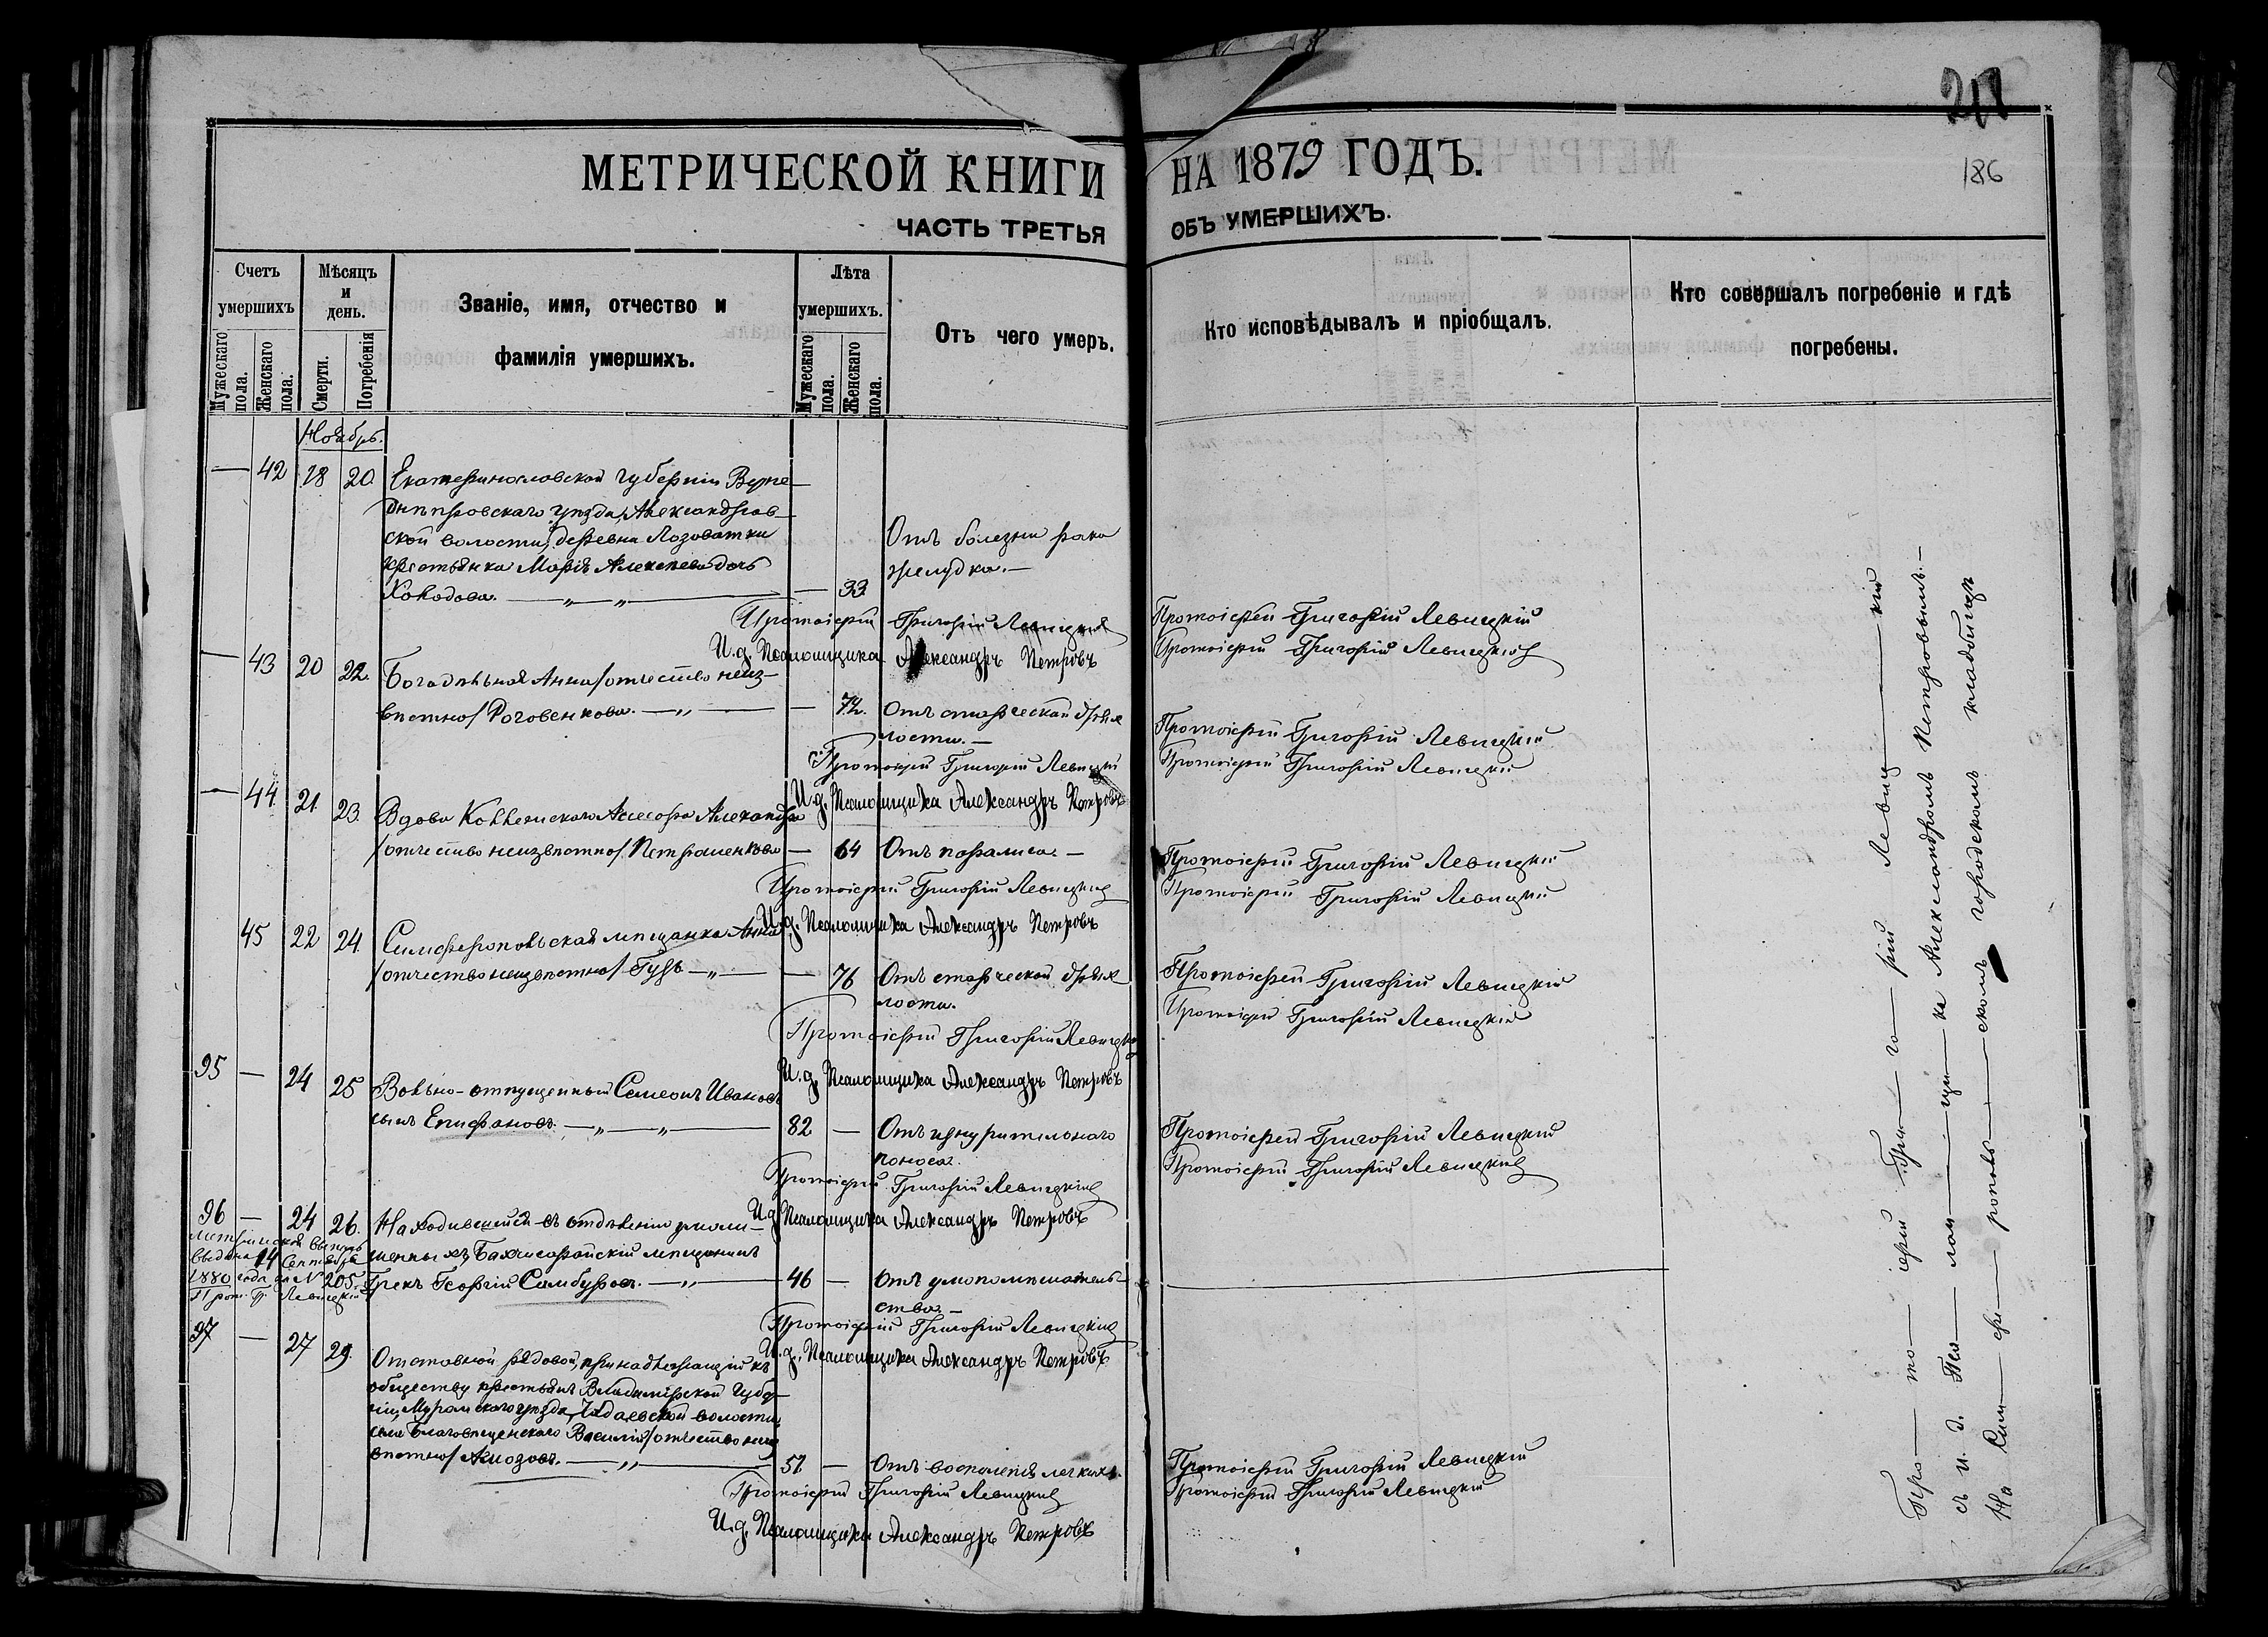 218
МЕТРИЧЕСКОЙ КНИГИ НА 1879 ГОДЪ.
186
ЧАСТЬ ТРЕТЬЯ ОБЪ УМЕРШИХЪ.
Счетъ умершихъ
Мужескаго пола.
Женскаго пола.
Мѣсяцъ и день.
Смерти.
Погребенія
Званіе, имя, отчество и фамилія умершихъ.
Лѣта умершихъ.
Мужескаго пола.
Женскаго пола.
Отъ чего умеръ.
Кто исповѣдывалъ и пріобщалъ.
Кто совершалъ погребеніе и гдѣ погребены.
Ноябрь.
— 42 18 20 Екатеринославской губерніи Верхне
днѣпровскаго уѣзда, Александров
ской волости, деревни Лозоватки
крестьянка Марія Алексѣева дочь
— 33 Отъ болезни рака
желудка. —
Протоіерей Григорій Левицкій
И.д. Псаломщика Александръ Петровъ
Протоіерей Григорій Левицкій
Протоіерей Григорій Левицкій
— 43 20 22. Богадѣльная Анна /отчество неиз-
вѣстно/ Роговенкова. — „ — — 72. Отъ старческой дрях
лости. —
Протоіерей Григорій Левицкій
И.д. Псаломщика Александръ Петровъ
Протоіерей Григорій Левицкій
Протоіерей Григорій Левицкій
— 44 21. 23. Вдова Коллежскаго Ассесора Александра
/отчество неизвѣстно/ Петрашенкова — 64 Отъ паралича. —
Протоіерей Григорій Левицкій
И.д. Псаломщика Александръ Петровъ
Протоіерей Григорій Левицкій
Протоіерей Григорій Левицкій
45 22 24 Симферопольская мѣщанка Анна
/отчество неизвѣстно/ Гузь — „ — — 76 Отъ старческой дрях
лости.
Протоіерей Григорій Левицкій
И.д. Псаломщика Александръ Петровъ
Протоіерей Григорій Левицкій
Протоіерей Григорій Левицкій
95 — 24 25 Вольно-отпущенный Семеонъ Ивановъ
сынъ Епифановъ. — „ — „ — 82 — Отъ изнурительнаго
поноса.
Протоіерей Григорій Левицкій
И.д. Псаломщика Александръ Петровъ
Протоіерей Григорій Левицкій
Протоіерей Григорій Левицкій
96 — 24 26. Находившійся въ отдѣленіи умали-
шенныхъ Бахчисарайскій мѣщанинъ
Грекъ Георгій Самбуровъ. — „ — 46 — Отъ умопомѣшательс
тва. —
выдана 14 Сентября
1880 года за № 205.
Прот. Гр. Левицкій
Протоіерей Григорій Левицкій
И.д. Псаломщика Александръ Петровъ
97 — 27 29. Отставной рядовой, принадлежащій къ
обществу крестьянъ Владимірской губер
ніи, Муромскаго уѣзда, Чадаевской волости,
села Благовѣщенскаго Василій /отчество неиз
вѣстно/ Амозовъ. — „ — 57 — Отъ воспаленія легкихъ.
Протоіерей Григорій Левицкій
И.д. Псаломщика Александръ Петровъ
Протоіерей Григорій Левицкій
Протоіерей Григорій Левицкій
Про — то — іерей Гри — го — рій Левиц — кій
съ и. д. Пса — лом — щи — ка Александромъ Петровымъ. —
На Сим — фе — рополь — скомъ городскомъ кладбищѣ